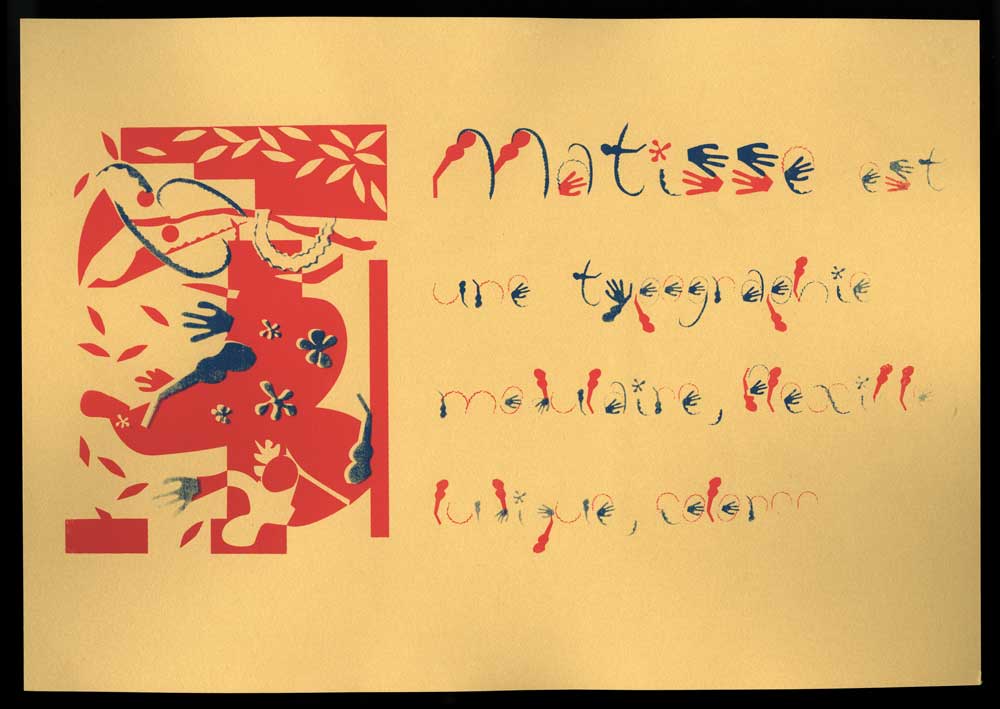 Matisse est
une typographie
modulaire, flexible
ludique,